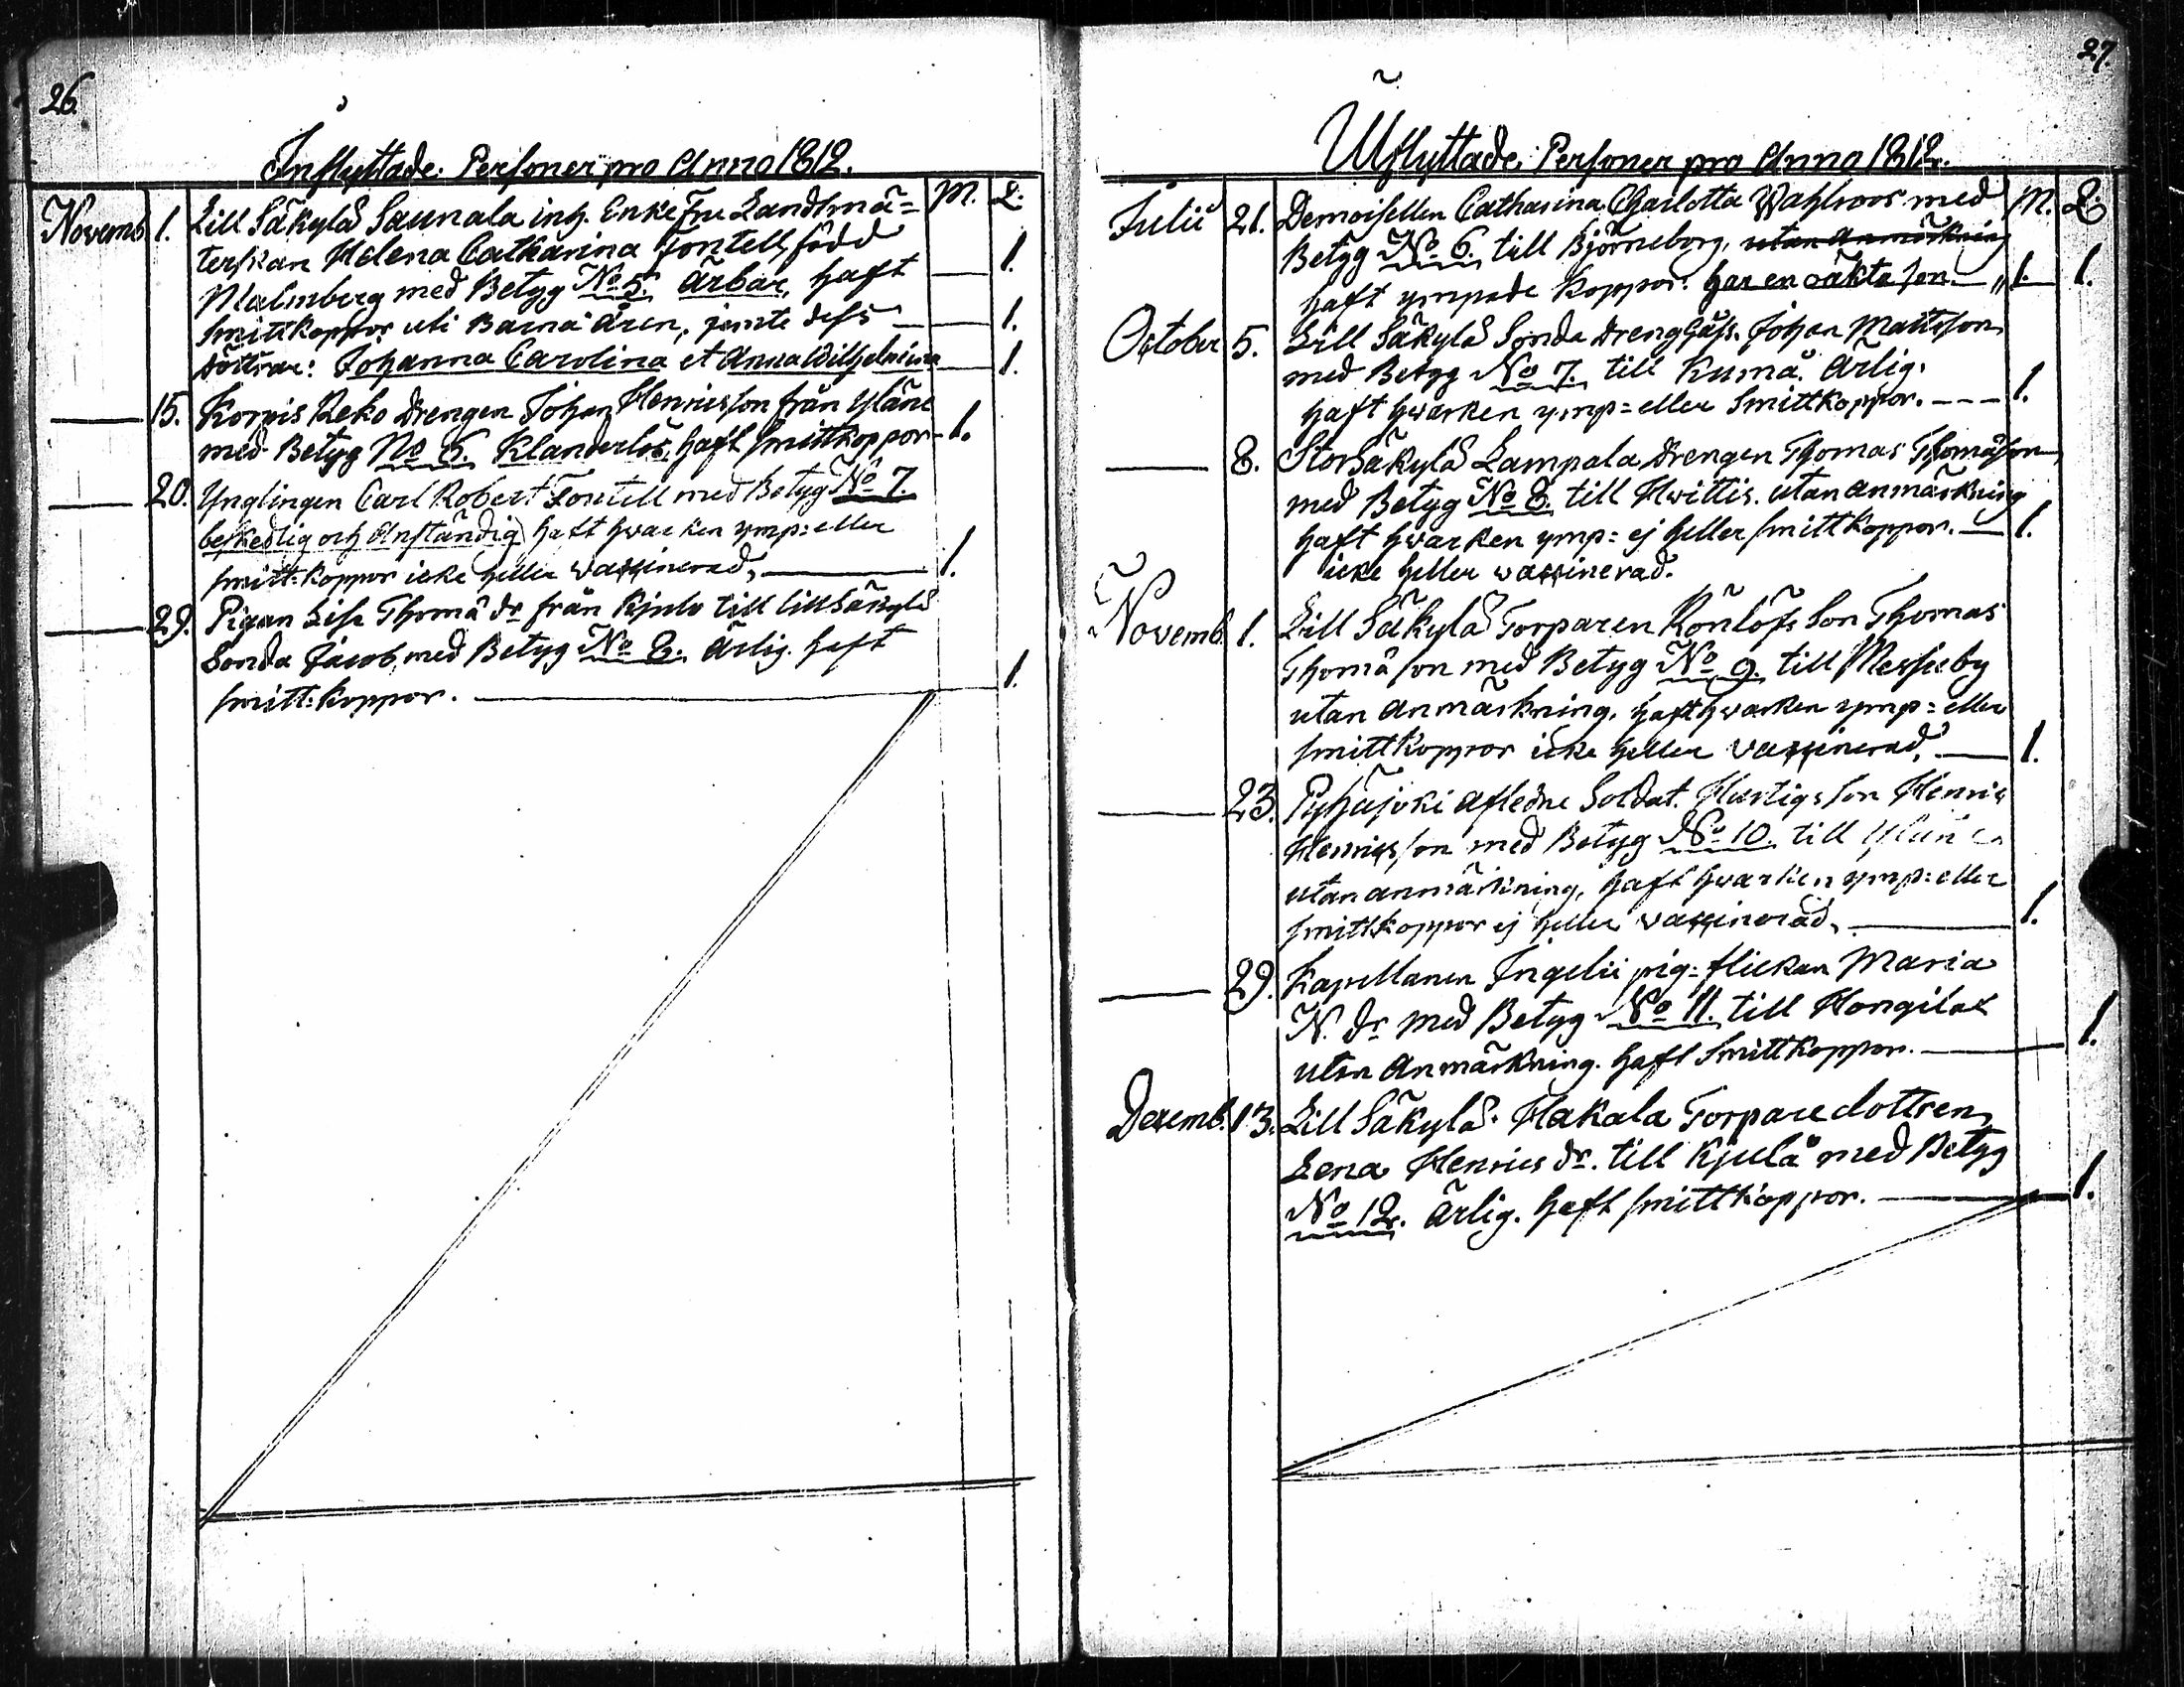 26.
Inflyttade Personer pro Anno 1812.
M. Q.
Novemb. 1. Lill Säkylä Saunala inh. Enke Fru Landtmä=
terskan Helena Catharina Fontell, född
Malmberg med Betyg No 5. Ärbar, haft — 1.
smittkoppor uti Barna Åren, jemte dess — 1.
döttrar: Johanna Carolina et Anna Wilhelmina — 1.
— 15. Korpis Reko Drengen Johan Henricsson från Yläne
med Betyg No 6. Klanderlös, haft smittkoppor — 1.
— 20. Ynglingen Carl Robert Fontell med Betyg No 7.
beskedlig och Anständig haft hwarken ymp: eller
smitt: koppor icke heller waccinerad, — 1.
— 29. Pigan Lisa Thomä dr från Kjulo till lill Säkylä
Sonda Jacob, med Betyg No 8. Ärlig. haft
smitt: koppor. — 1.
27.
Utflyttade Personer pro Anno 1812.
M. Q.
Julii 21. Demoisellen Catharina Charlotta Wahlroos med
Betyg No 6. till Björneborg, utan anmärkning
haft ympade koppor. har en oäkta son. — „ 1. 1.
October 5. Lill Säkylä Sonda Dreng Johan Mattsson
med Betyg No 7. till Kumå. Ärlig.
haft hwarken ymp= eller Smittkoppor. --- 1.
— 8. Stor Säkylä Lampala Drengen Thomas Thomäson
med Betyg No 8. till Hwittis. utan anmärkning
haft hwarken ymp= ej heller smittkoppor. — 1.
icke heller waccinerad.
Novemb. 1. Lill Säkylä Torparen Rönlöfs Son Thomas
Thomä son med Betyg No 9. till Messuby
utan anmärkning, haft hwarken ymp= eller
smittkoppor icke heller vaccinerad. — 1.
— 23. Pyhäjoki afledne Soldat. Hurtigs son Henric
Henrics son med Betyg No 10. till Yläne
utan anmärkning, haft hwarken ymp: eller
smittkoppor ej heller waccinerad, — 1.
— 29. Kapellanen Ingelii pig= flickan Maria
N. dr med Betyg No 11. till Hongilax
utan Anmärkning. haft Smittkoppor. — 1.
Decemb. 13. Lill Säkylä. Hakala Torpare dottren
Lena Henrics dr. till Kjulå med Betyg
No 12. Ärlig. haft smittkoppor. — 1.